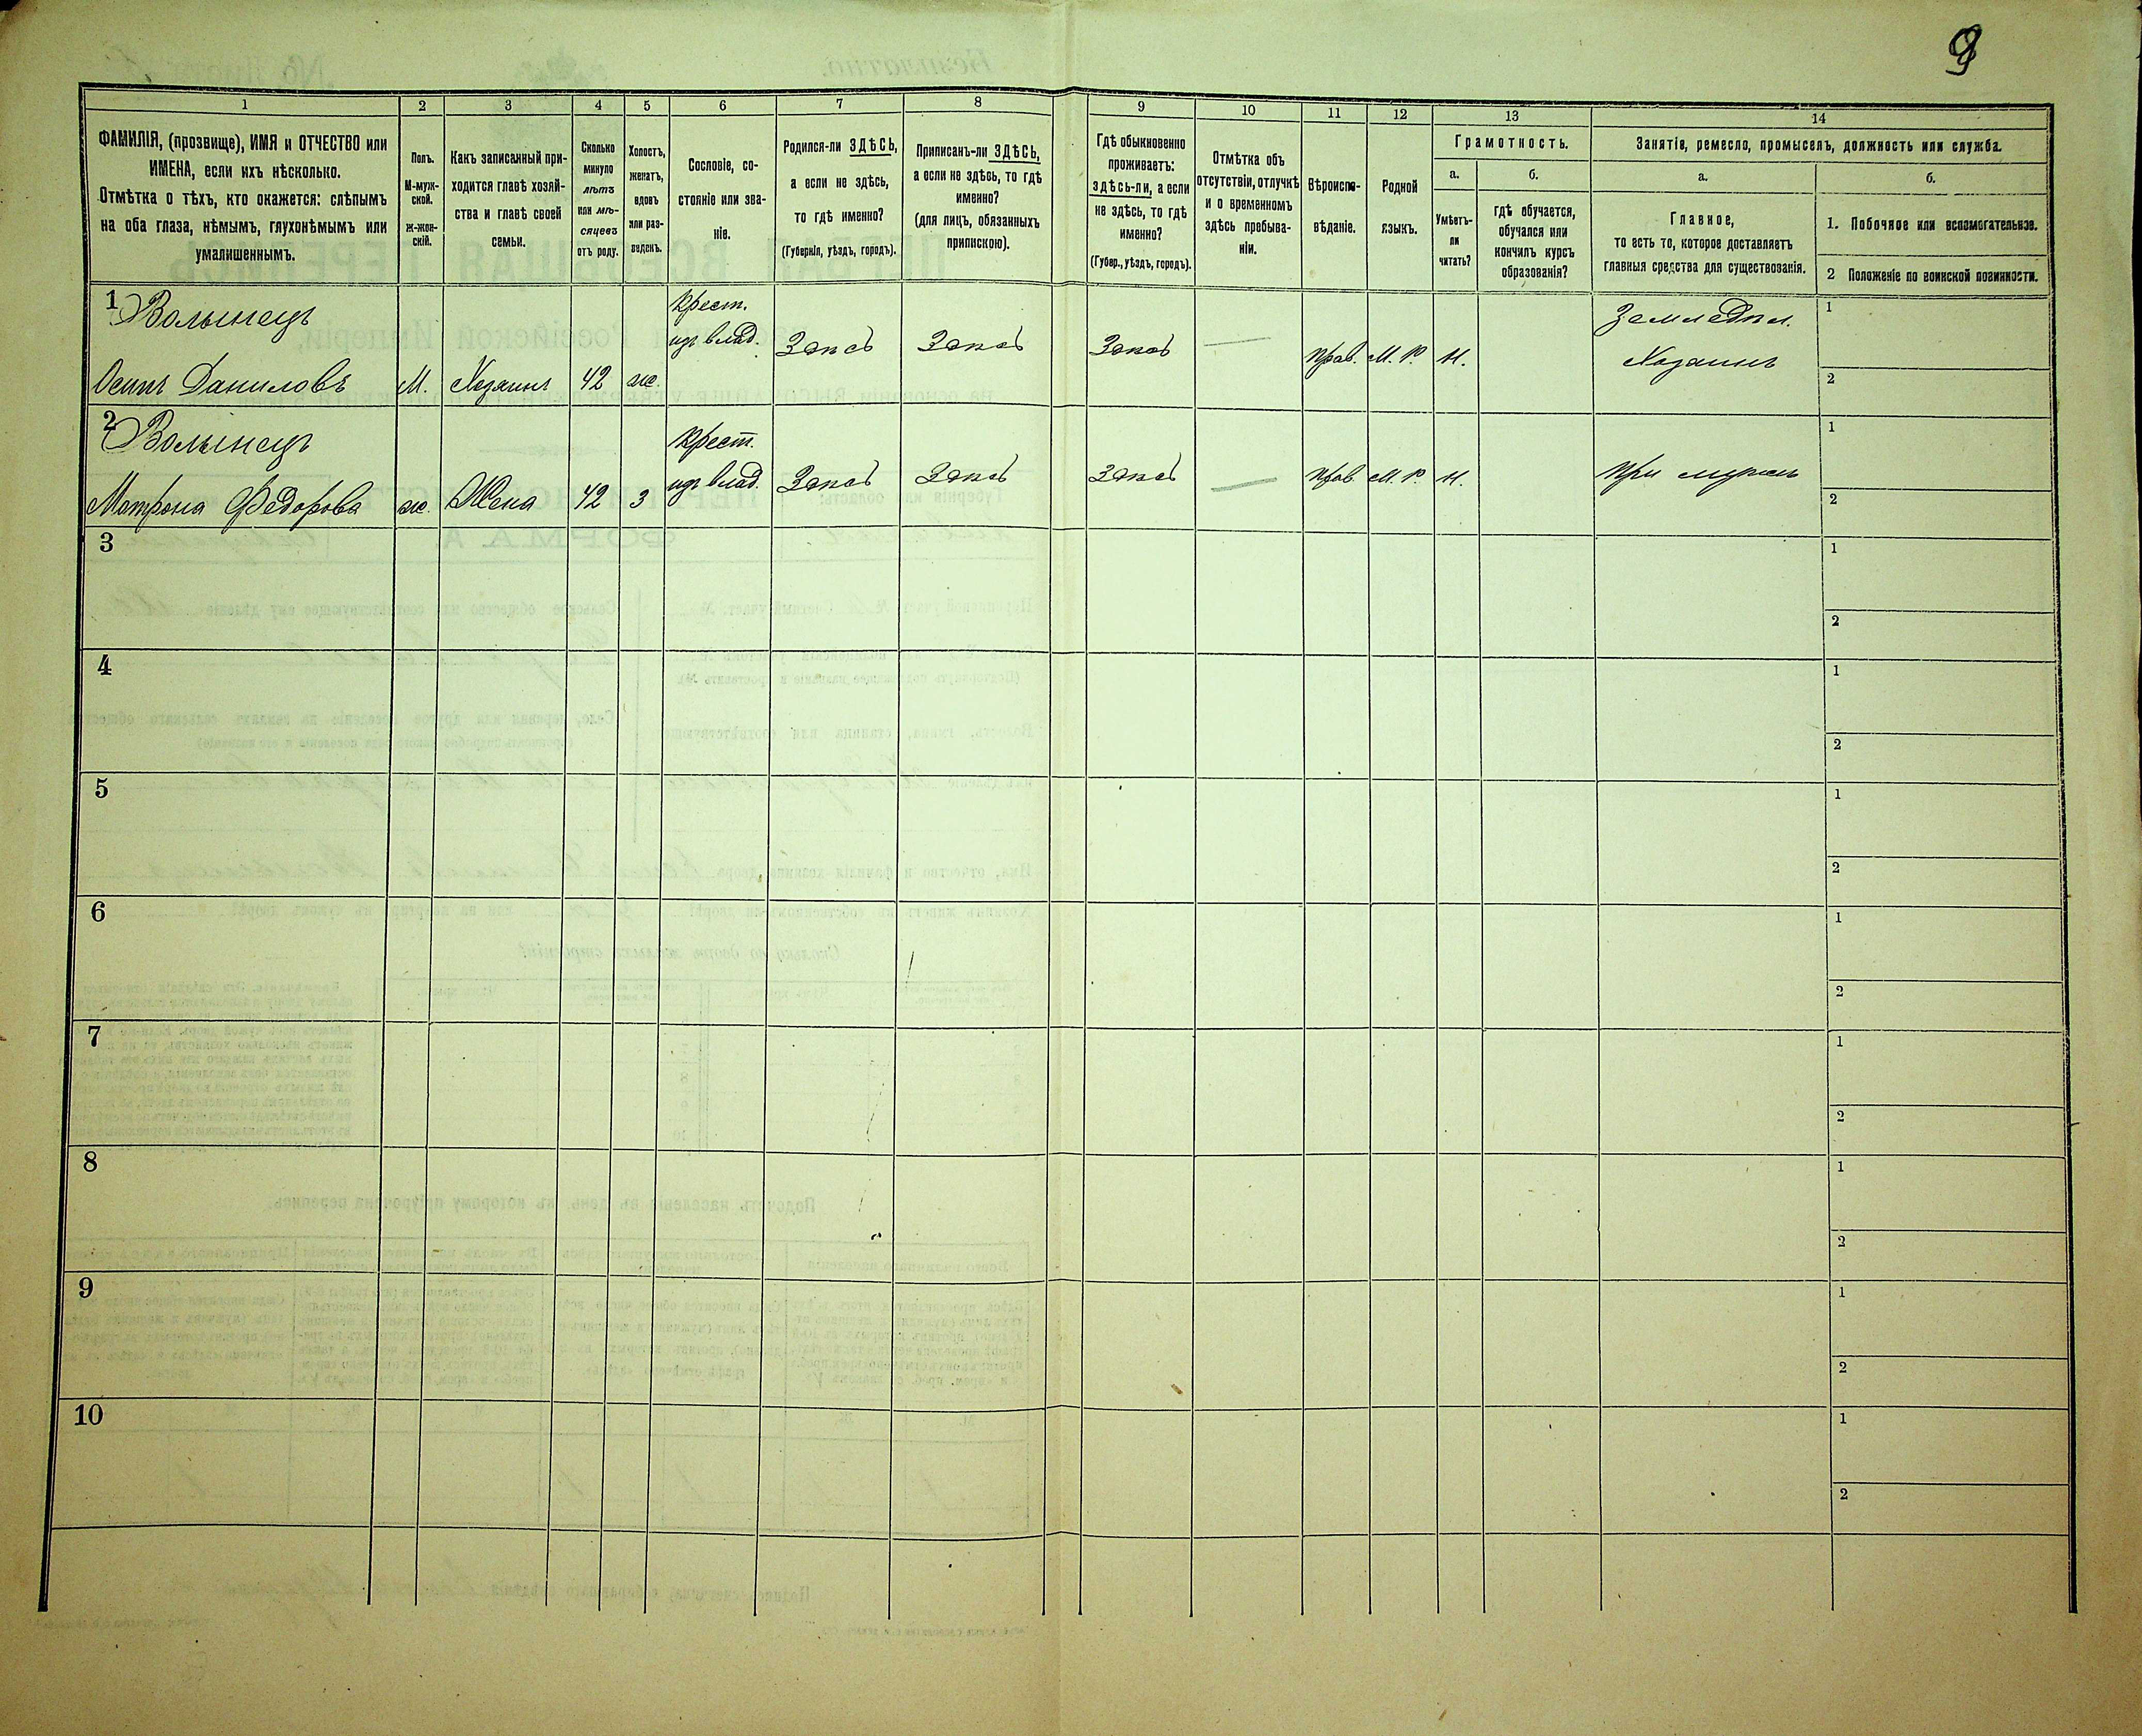 9
1
2
3
4
5
6
7
8
9
10
11
12
13
14
ФАМИЛІЯ, (прозвище), ИМЯ и ОТЧЕСТВО или
ИМЕНА, если ихъ нѣсколько.
Отмѣтка о тѣхъ, кто окажется: слѣпымъ
на оба глаза, нѣмымъ, глухонѣмымъ или
умалишеннымъ.
Полъ.
М-муж-
ской.
ж-жен-
скій.
Какъ записанный при-
ходится главѣ хозяй-
ства и главѣ своей
семьи.
Сколько
минуло
лѣтъ
или мѣ-
сяцевъ
отъ роду.
Холостъ,
женатъ,
вдовъ
или раз-
веденъ.
Сословіе, со-
стояніе или зва-
ніе.
Родился-ли ЗДѢСЬ,
а если не здѣсь,
то гдѣ именно?
(Губернія, уѣздъ, городъ).
Приписанъ-ли ЗДѢСЬ,
а если не здѣсь, то гдѣ
именно?
(для лицъ, обязанныхъ
припискою).
Гдѣ обыкновенно
проживаетъ:
здѣсь-ли, а если
не здѣсь, то гдѣ
именно?
(Губер., уѣздъ, городъ).
Отмѣтка объ
отсутствіи, отлучкѣ
и о временномъ
здѣсь пребыва-
ніи.
Вѣроиспо-
вѣданіе.
Родной
языкъ.
Грамотность.
а.
Умѣетъ-
ли
читать?
б.
гдѣ обучается,
обучался или
кончилъ курсъ
образованія?
Занятія, ремесло, промыселъ, должность или служба.
а.
Главное,
то есть то, которое доставляетъ
главныя средства для существованія.
б.
1. Побочное или вспомогательное.
2 Положеніе по воинской повинности.
1 Волынецъ
Осипъ Даниловъ
М.
Хозяинъ
42
ж.
Крест.
изъ влад.
Здѣсь
Здѣсь
Здѣсь
—
Прав.
М. Р.
Н.
Земледѣл.
Хозяинъ
1
2
2 Волынецъ
Матрона Федорова
ж.
Жена
42
З
Крест.
изъ влад.
Здѣсь
Здѣсь
Здѣсь
—
Прав.
М. Р.
Н.
При мужѣ
1
2
3
1
2
4
1
2
5
1
2
6
1
2
7
1
2
8
1
2
9
1
2
10
1
2